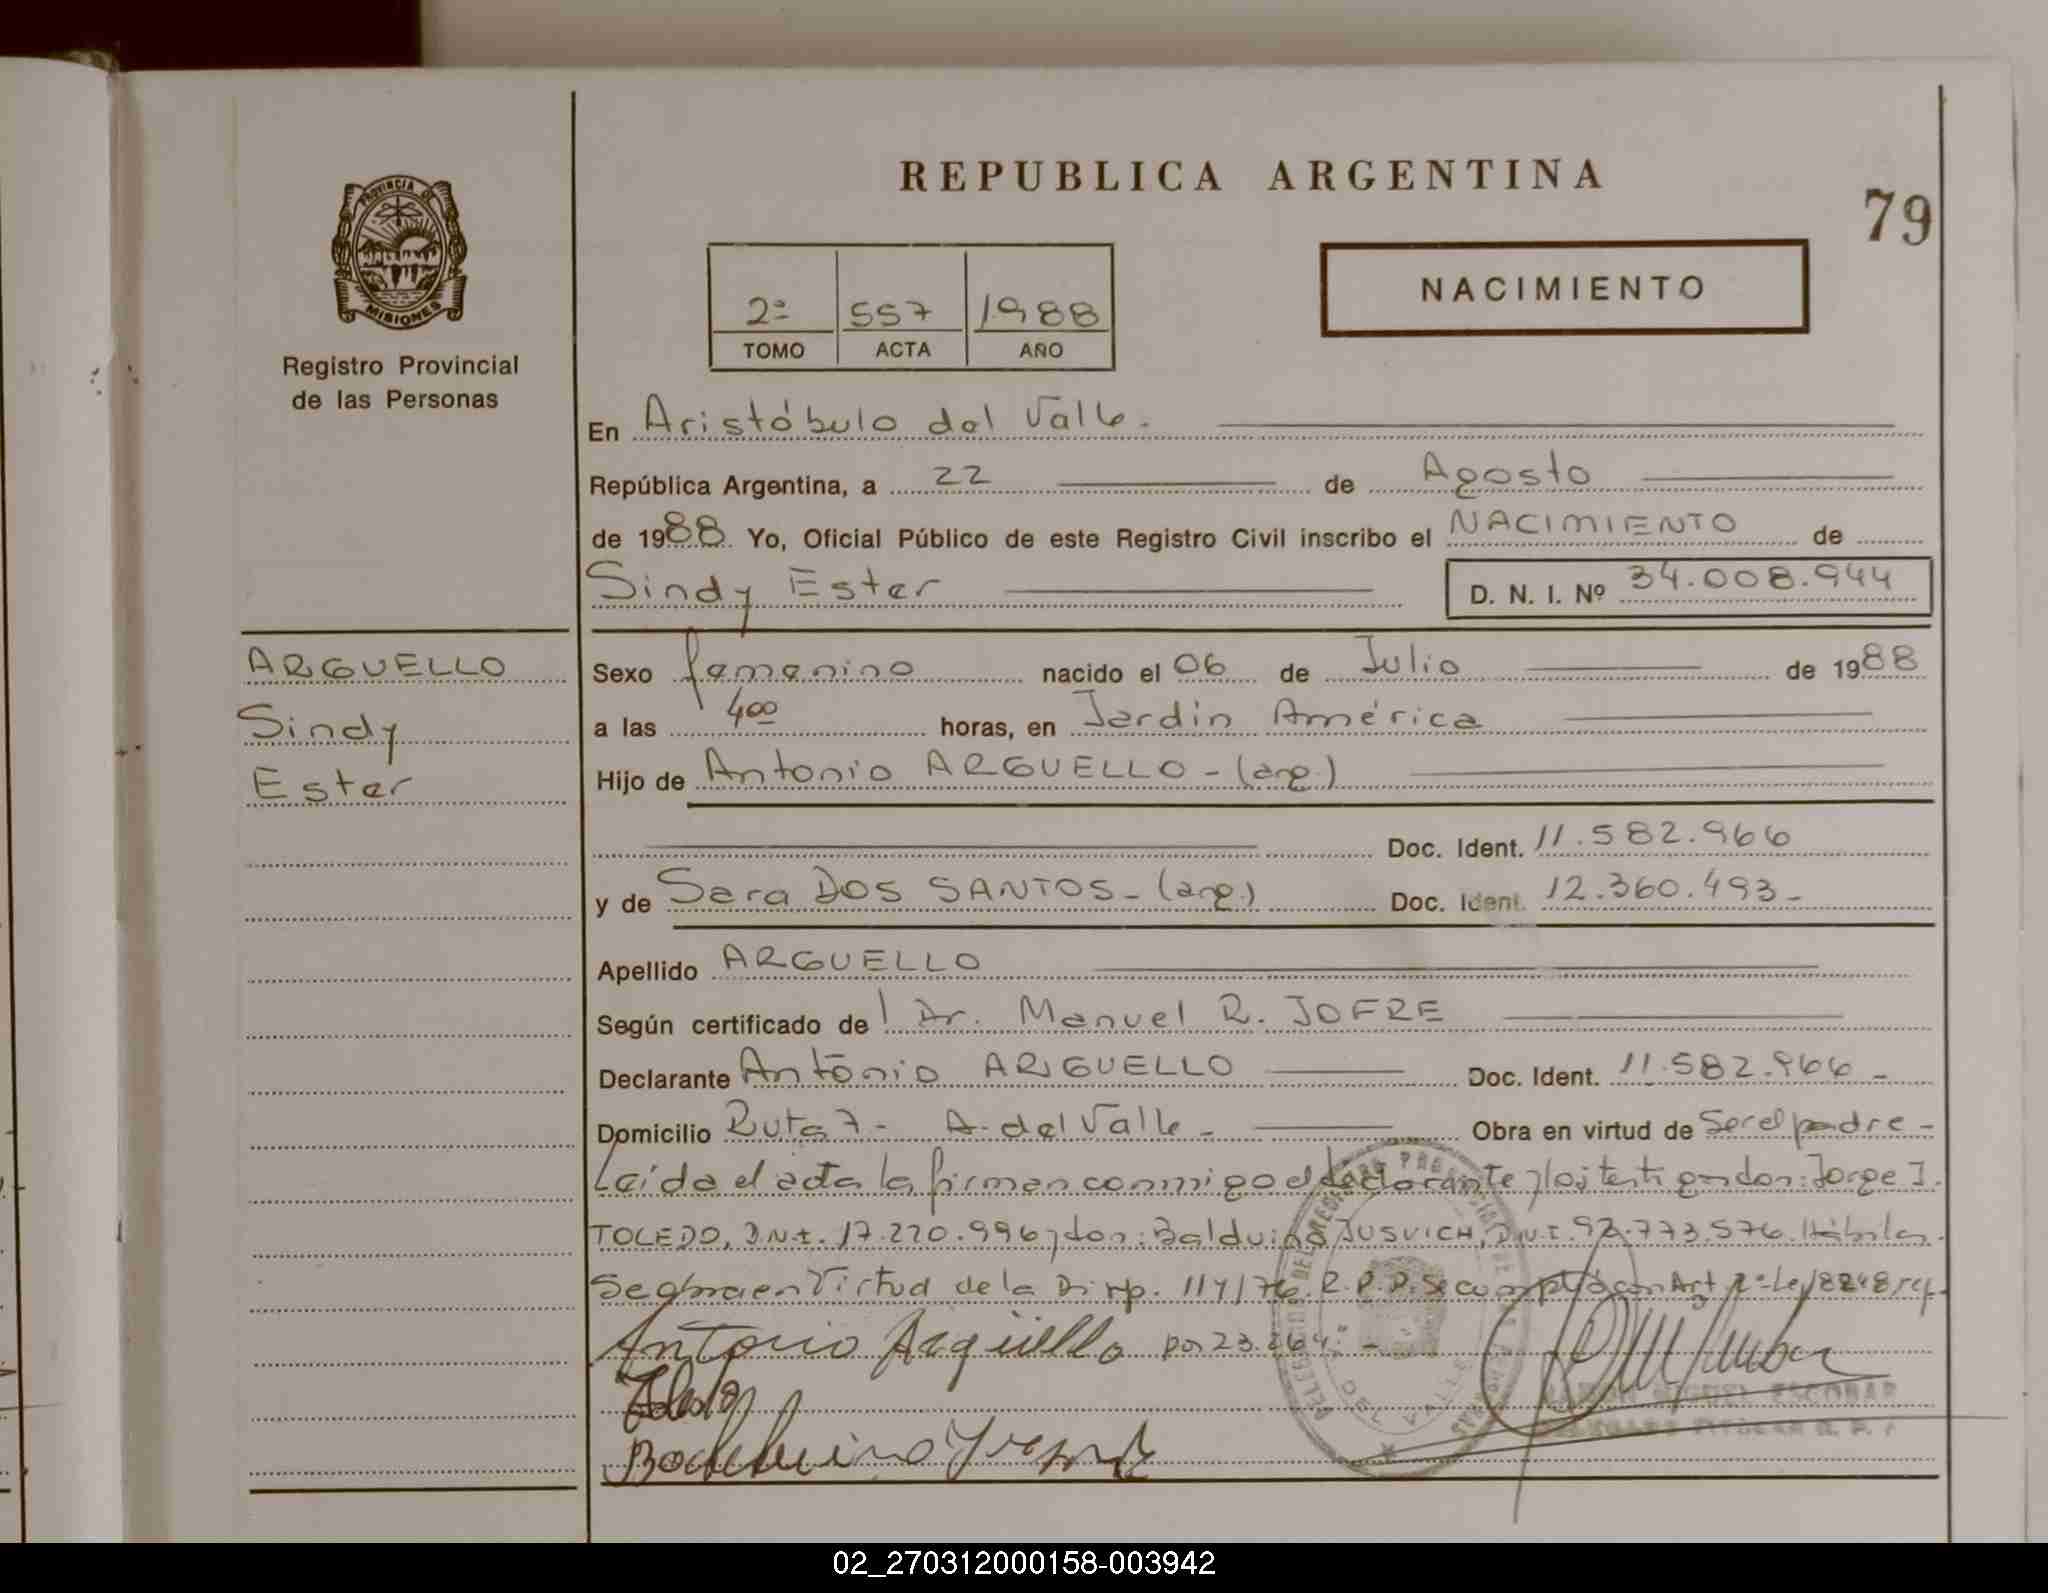 REPUBLICA ARGENTINA
79
PROVINCIA DE
MISIONES
Registro Provincial
de las Personas
2ª 557 1988
TOMO ACTA AÑO
NACIMIENTO
En Aristóbulo del Valle.
República Argentina, a 22 de Agosto
de 1988. Yo, Oficial Público de este Registro Civil inscribo el NACIMIENTO de
Sindy Ester D. N. I. Nº 34.008.944
ARGUELLO
Sindy
Ester
Sexo femenino nacido el 06 de Julio de 1988
a las 400 horas, en Jardín América
Hijo de Antonio ARGUELLO - (arg.)
Doc. Ident. 11.582.966
y de Sara DOS SANTOS - (arg.) Doc. Ident. 12.360.493 -
Apellido ARGUELLO
Según certificado de l Dr. Manuel R. JOFRE
Declarante Antonio ARGUELLO Doc. Ident. 11.582.966 -
Domicilio Ruta 7 - A. del Valle - Obra en virtud de Ser el padre -
Leída el acta la firman conmigo el declarante y los testigos don: Jorge I.
TOLEDO, D.N.I. 17.220.996 y don: Balduino JUSVICH, D.N.I. 92.773.576. Hábiles.
Se labra en Virtud de la Disp. 114/76. R.P.P. Se cumplió con Art. 2º Ley 18248 ref.
Antonio Argüello por 23.264. -
Toledo
RAMON MIGUEL ESCOBAR
02_270312000158-003942